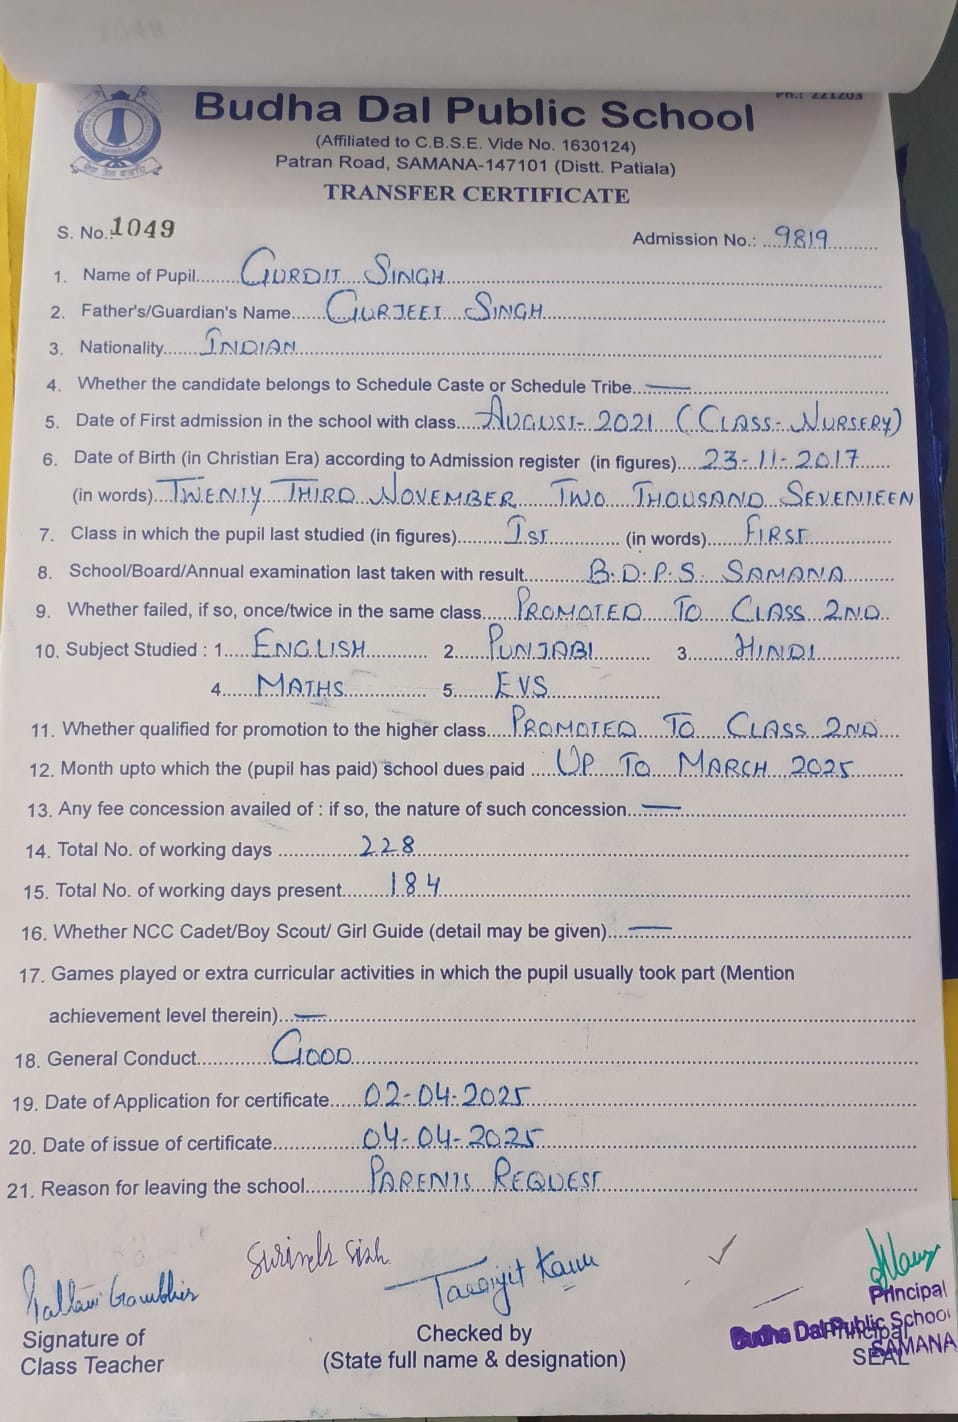 Ph.: 221203
Budha Dal Public School
(Affiliated to C.B.S.E. Vide No. 1630124)
Patran Road, SAMANA-147101 (Distt. Patiala)
TRANSFER CERTIFICATE
S. No.: 1049
Admission No.: 9819
1. Name of Pupil GURDIT SINGH
2. Father's/Guardian's Name GURJEET SINGH
3. Nationality INDIAN
4. Whether the candidate belongs to Schedule Caste or Schedule Tribe —
5. Date of First admission in the school with class AUGUST-2021 (CLASS-NURSERY)
6. Date of Birth (in Christian Era) according to Admission register (in figures) 23-11-2017
(in words) TWENTY THIRD NOVEMBER TWO THOUSAND SEVENTEEN
7. Class in which the pupil last studied (in figures) Ist (in words) FIRST
8. School/Board/Annual examination last taken with result B.D.P.S. SAMANA
9. Whether failed, if so, once/twice in the same class PROMOTED TO CLASS 2ND
10. Subject Studied : 1. ENGLISH 2. PUNJABI 3. HINDI
4. MATHS 5. EVS
11. Whether qualified for promotion to the higher class PROMOTED TO CLASS 2ND
12. Month upto which the (pupil has paid) school dues paid UP TO MARCH 2025
13. Any fee concession availed of : if so, the nature of such concession —
14. Total No. of working days 228
15. Total No. of working days present 184
16. Whether NCC Cadet/Boy Scout/ Girl Guide (detail may be given) —
17. Games played or extra curricular activities in which the pupil usually took part (Mention
achievement level therein) —
18. General Conduct GOOD
19. Date of Application for certificate 02-04-2025
20. Date of issue of certificate 04-04-2025
21. Reason for leaving the school PARENTS REQUEST
Signature of
Class Teacher
Checked by
(State full name & designation)
Principal
Budha Dal Public School
SAMANA
Principal
SEAL